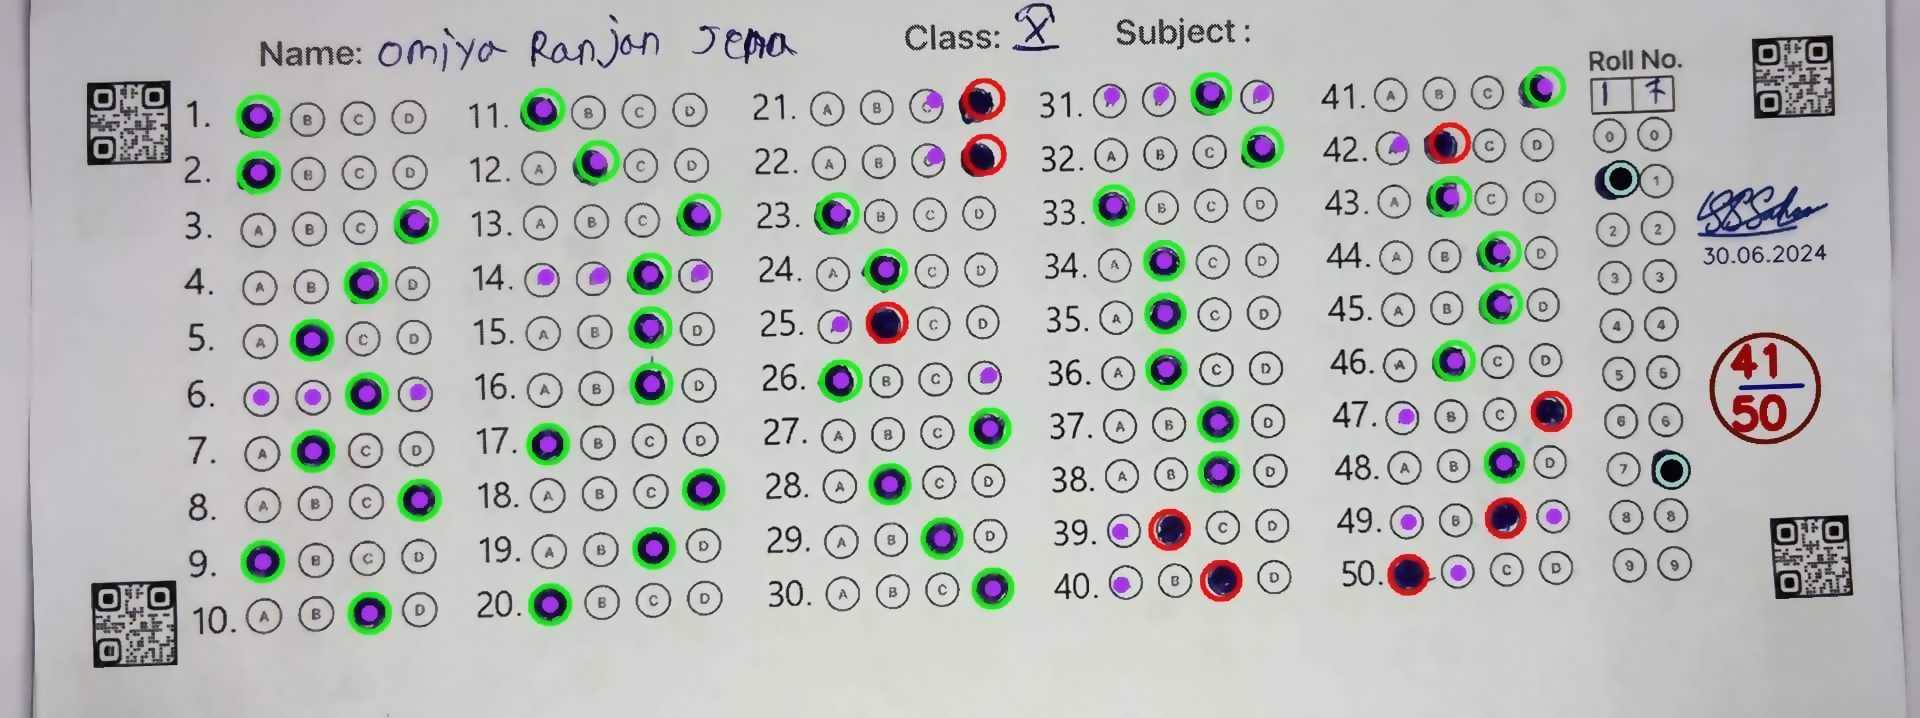 Name: Omiya Ranjan Jena Class: X Subject :
Roll No.
1 7
1. B C D
2. B C D
3. A B C
4. A B D
5. A C D
6.
7. A C D
8. A B C
9. B C D
10. A B D
11. B C D
12. A C D
13. A B C
14.
15. A B D
16. A B D
17. B C D
18. A B C
19. A B D
20. B C D
21. A B C
22. A B C
23. B C D
24. A C D
25. C D
26. B C
27. A B C
28. A C D
29. A B D
30. A B C
31.
32. A B C
33. B C D
34. A C D
35. A C D
36. A C D
37. A B D
38. A B D
39. C D
40. B D
41. A B C
42. C D
43. A C D
44. A B D
45. A B D
46. A C D
47. B C
48. A B D
49. B
50. C D
0 0
1
2 2
3 3
4 4
5 5
6 6
7
8 8
9 9
30.06.2024
41
50